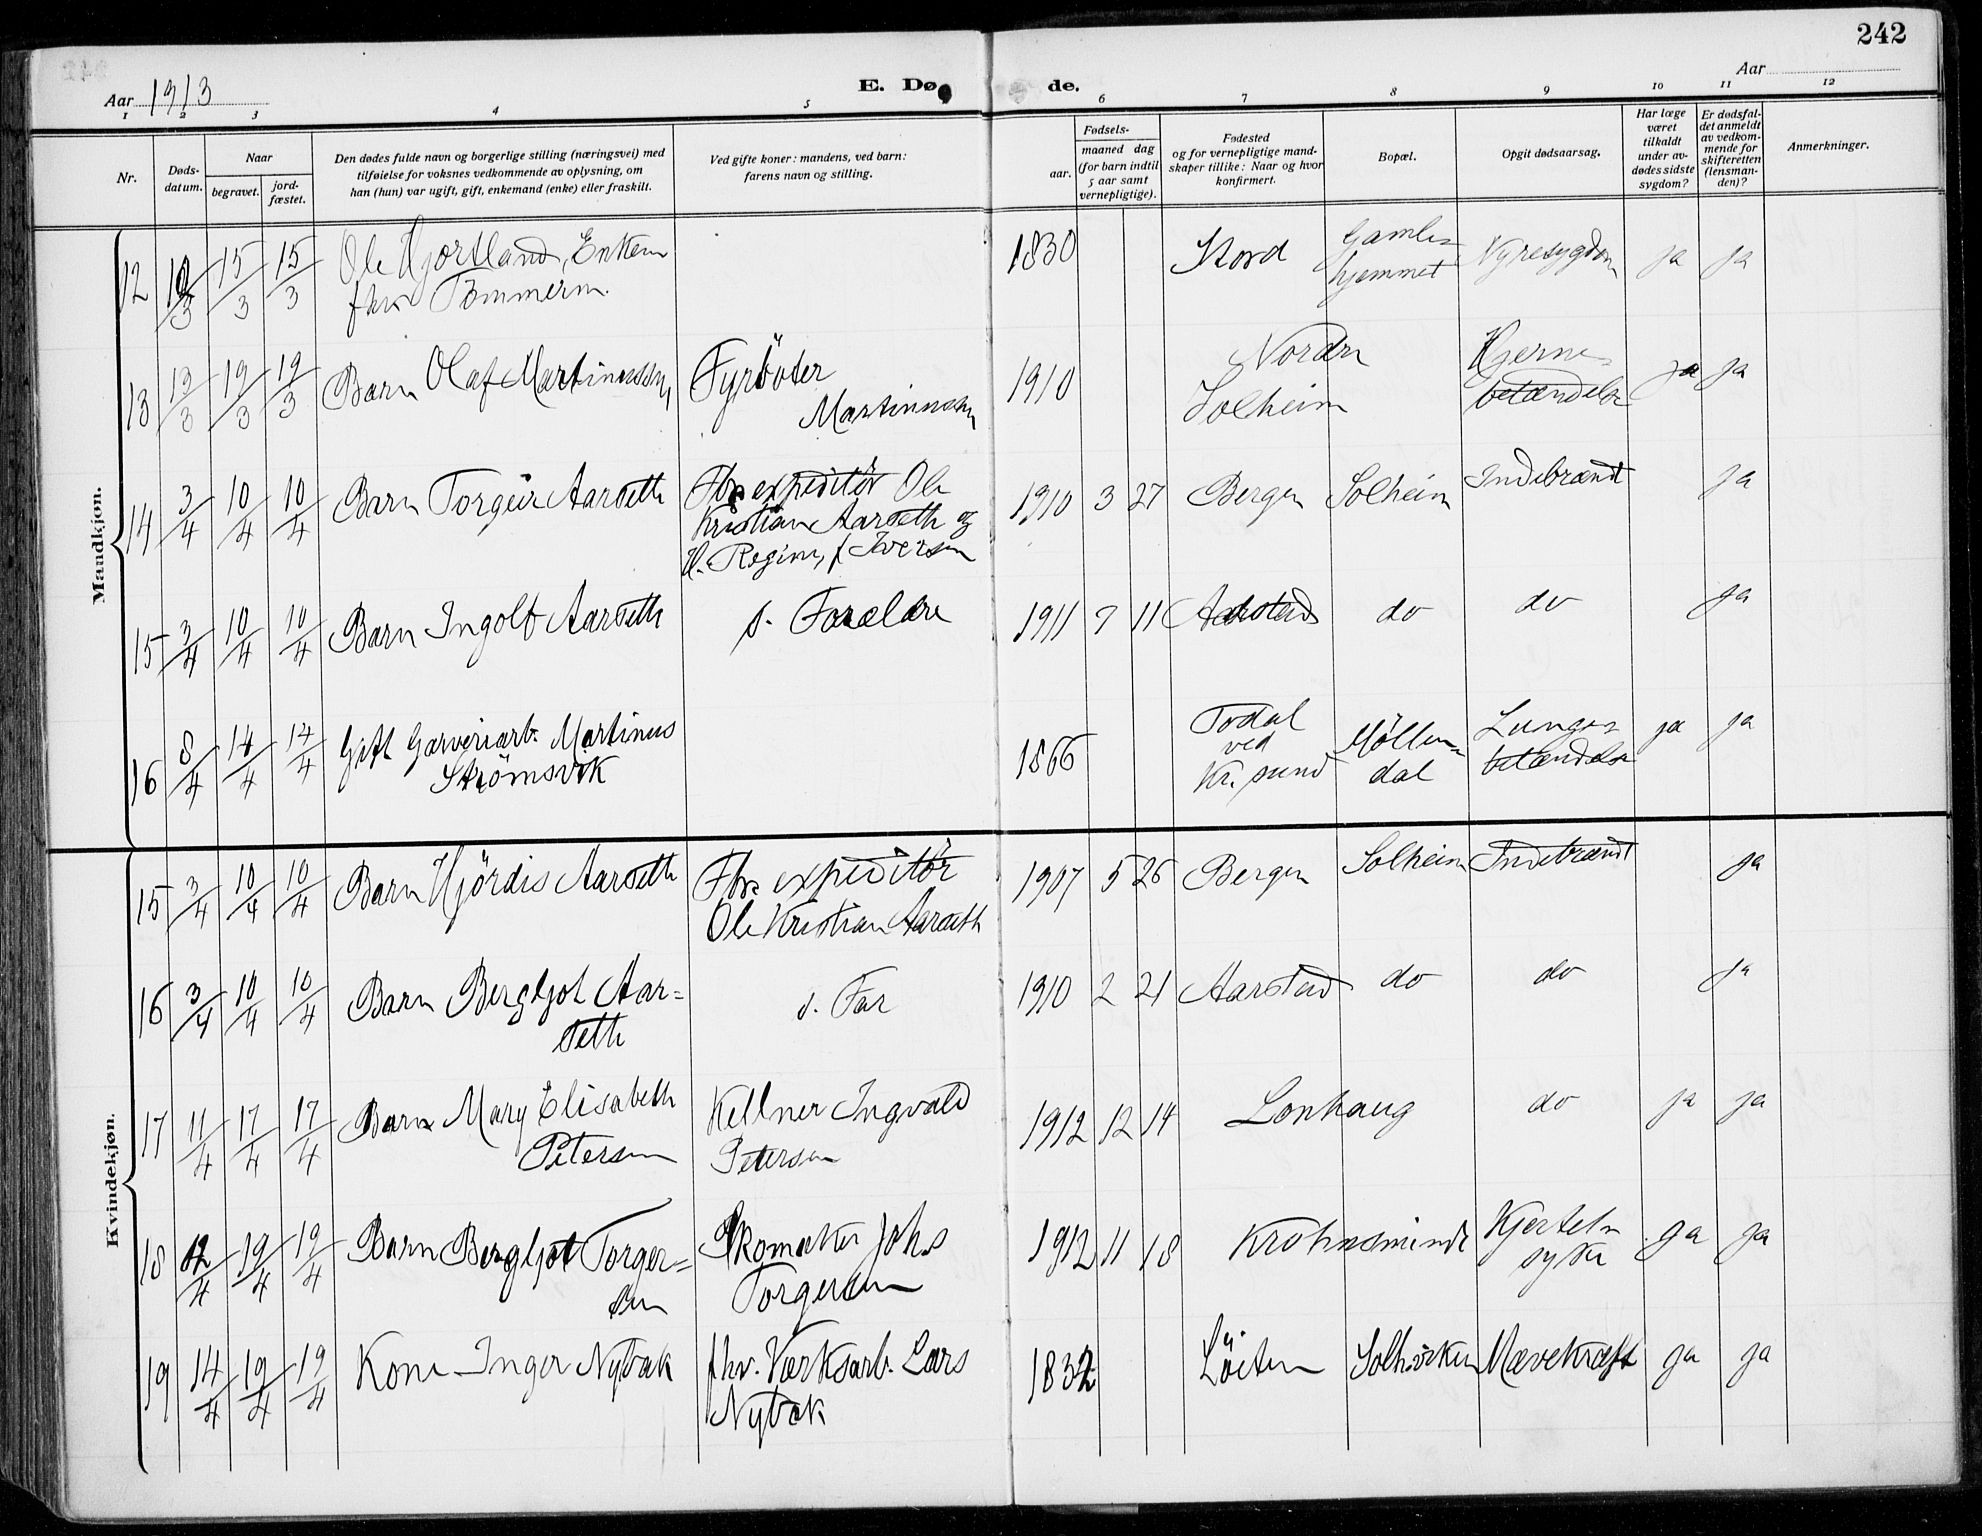 242
Aar 1913
E. Dø
de.
Aar
1 2 3 4 5 6 7 8 9 10 11 12
Nr.
Døds-
datum.
Naar
begravet.
jord-
fæstet.
Den dødes fulde navn og borgerlige stilling (næringsvei) med
tilføielse for voksnes vedkommende av oplysning, om
han (hun) var ugift, gift, enkemand (enke) eller fraskilt.
Ved gifte koner: mandens, ved barn:
farens navn og stilling.
Fødsels-
aar.
maaned dag
(for barn indtil
5 aar samt
vernepligtige).
Fødested
og for vernepligtige mand-
skaper tillike: Naar og hvor
konfirmert.
Bopæl.
Opgit dødsaarsag.
Har læge
været
tilkaldt
under av-
dødes sidste
sygdom?
Er dødsfal-
det anmeldt
av vedkom-
mende for
skifteretten
(lensman-
den)?
Anmerkninger.
Mandkjøn.
12 /3 15/3 15/3 Ole Hjortland, Enkem
fhv Tømmerm.
1830 Stord Gamle-
hjemmet Nyresygdom ja ja
13 13/3 19/3 19/3 Barn Olaf Martinussen,
Fyrböter
Martinussen
1910 Nordre
Solheim
Hjerne-
betændelse ja ja
14 3/4 10/4 10/4 Barn Torgeir Aarseth
Fhv expeditør Ole
Kristian Aarseth og
H. Regine, f Iversen
1910 3 27 Bergen Solheim Indebrændt ja
15 3/4 10/4 10/4 Barn Ingolf Aarseth
s. Forældre
1911 7 11 Aarstad do do ja
16 8/4 14/4 14/4 Gift Garveriarb. Martinus
Strømsvik
1866 Todal
ved
Kr. sund
Møllen-
dal
Lunge-
betændelse ja ja
Kvindekjøn.
15 3/4 10/4 10/4 Barn Hjördis Aarseth
Fhv expeditør
Ole Kristian Aarseth
1907 5 26 Bergen Solheim Indebrændt ja
16 3/4 10/4 10/4 Barn Bergljot Aar=
seth
s. Far
1910 2 21 Aarstad do do ja
17 11/4 17/4 17/4 Barn Mary Elisabeth
Petersen
Kellner Ingvald
Petersen
1912 12 14 Lonhaug do ja ja
18 12/4 19/4 19/4 Barn Bergljot Torger=
sen
Skomaker Johs
Torgersen
1912 11 18 Krohnsminde Kjertel-
syke ja ja
19 14/4 19/4 19/4 Kone Inger Nybak
fhv. Værksarb. Lars
Nybak
1832 Löiten Solhviken Mavekræft ja ja